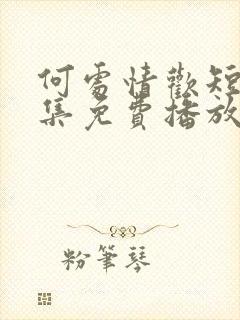 何處情歡短
集免費播放
粉筆琴